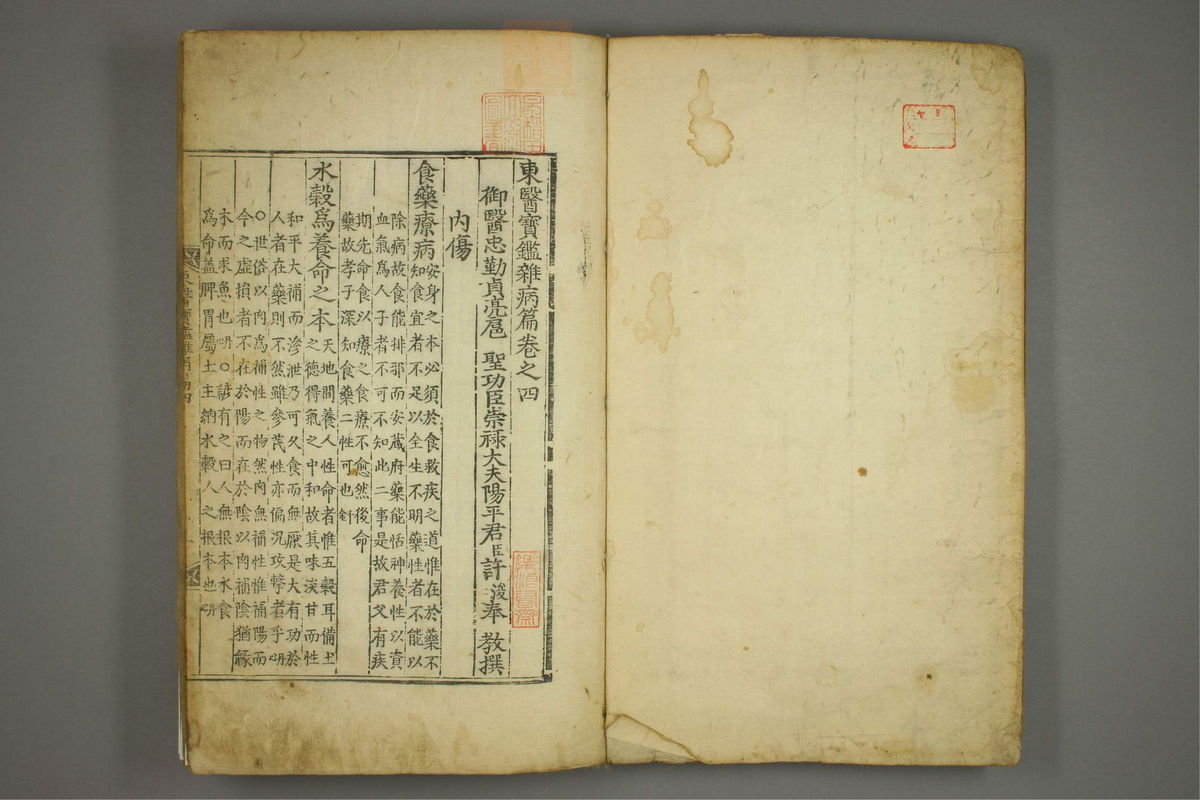 東醫寶鑑雜病篇卷之四
御醫忠勤貞亮扈 聖功臣崇祿大夫陽平君臣許浚奉 教撰
內傷
食藥療病
安身之本必須於食救疾之道惟在於藥不
知食宜者不足以全生不明藥性者不能以
除病故食能排邪而安藏府藥能恬神養性以資
血氣爲人子者不可不知此二事是故君父有疾
期先命食以療之食療不愈然後命
藥故孝子深知食藥二性可也
水穀爲養命之本
天地間養人性命者惟五穀耳備土
之德得氣之中和故其味淡甘而性
和平大補而滲泄乃可久食而無厭是大有功於
人者在藥則不然雖參芪性亦偏況攻擊者乎
○世俗以肉爲補性之物然肉無補性惟補陽而
今之虛損者不在於陽而在於陰以肉補陰猶緣
木而求魚也 ○諺有之曰人無根本水食
爲命盖脾胃屬土主納水穀人之根本也